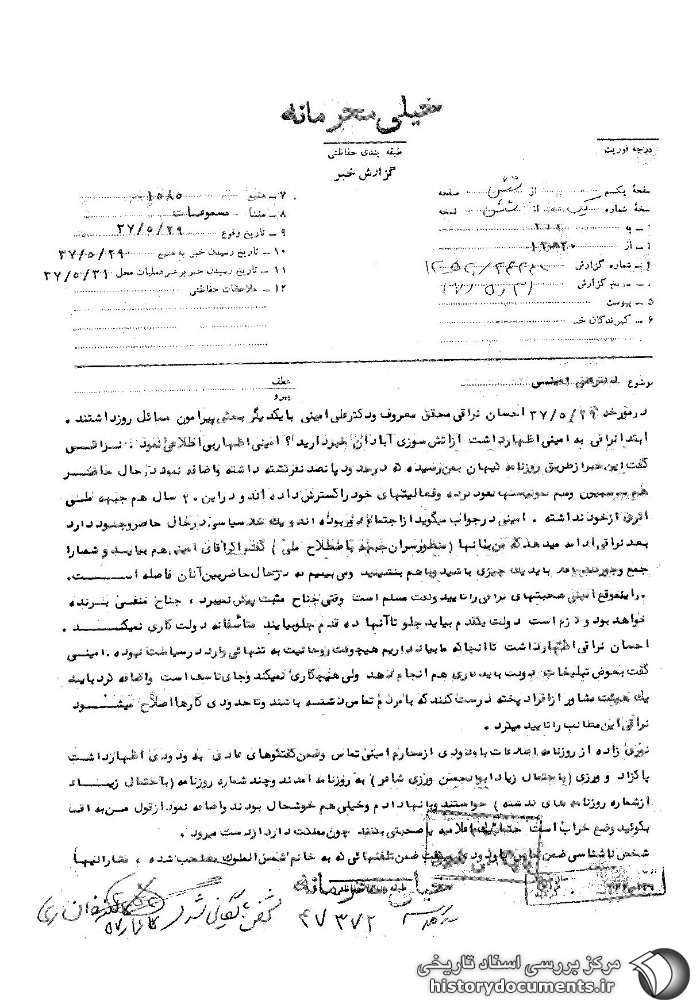 خیلی محرمانه
طبقه بندی حفاظتی
گزارش خبر
درجه فوریت
صفحه یکم از شش صفحه
نسخه شماره یک از شش نسخه
۱ـ به
۲ـ از
۳ـ شماره گزارش
۴ـ تاریخ گزارش
۵ـ پیوست
۶ـ گیرندگان خبر
۷ـ منبع ۱۵۸۵
۸ـ منشأ مسموعات
۹ـ تاریخ وقوع ۳۷/۵/۲۹
۱۰ـ تاریخ رسیدن خبر به منبع ۳۷/۵/۲۹
۱۱ـ تاریخ رسیدن خبر برهبر عملیات محل ۳۷/۵/۳۱
۱۲ـ ملاحظات حفاظتی
موضوع
عطف
پیرو
در مورخه ۳۷/۵/۲۹ احسان نراقی محقق معروف و دکتر علی امینی با یکدیگر بحثی پیرامون مسائل روز داشتند .
ابتدا نراقی به امینی اظهار داشت از آتش سوزی آبادان خبر دارید ؟ امینی اظهار بی اطلاعی نمود . نراقی
گفت این خبر از طریق روزنامه کیهان بمن رسیده که در حدود پانصد نفر کشته داشته و اضافه نمود در حال حاضر
هم نبوده و فعالیتهای خود را گسترش داده اند و در این ۲۰ سال هم جبهه ملی
اثری از خود نداشته . امینی در جواب میگوید از اجتماع دور بوده اند و یک خلاء سیاسی در حال حاضر وجود دارد
بعد نراقی ادامه میدهد که من باینها (منظور سران جبهه باصطلاح ملی) گفتم اگر آقای امینی هم بیاید و شما را
جمع و جور باید یک چیزی باشید و با هم بنشینید ولی می بینم که در حال حاضر بین آنان فاصله است .
در این موقع امینی صحبتهای نراقی را تایید و گفت مسلم است وقتی جناح مثبت پیش نمیبرد ، جناح منفی برنده
خواهد بود و لازم است دولت یکقدم بیاید جلو تا آنها ده قدم جلو بیایند متأسفانه دولت کاری نمیکند .
احسان نراقی اظهار داشت تا آنجا که ما بیاد داریم هیچوقت روحانیت به تنهائی وارد در سیاست نبوده . امینی
گفت بعوض تبلیغات دولت باید کاری هم انجام دهد ولی هیچکاری نمیکند و جای تأسف است و اضافه کرد باید
یک هیئت مشاور از افراد پخته درست کنند که با مردم تماس داشته باشند و تا حدودی کارها اصلاح میشود
نراقی این مطالب را تایید میکرد .
نوری زاده از روزنامه اطلاعات با ورودی از محارم امینی تماس و ضمن گفتگوهای عادی به ورودی اظهار داشت
پاکزاد و ورزی (باحتمال زیاد ابوالحسن ورزی شاعر) به روزنامه آمدند و چند شماره روزنامه (باحتمال زیاد
از شماره روزنامه های گذشته) خواستند و بآنها دادم و خیلی هم خوشحال بودند و اضافه نمود از قول من به آقا
بگوئید وضع خراب است حتماً یک اعلامیه یا صحبتی بکنند چون مملکت دارد از دست میرود .
شخص ناشناسی ضمن تماس با ورودی میگفت ضمن تلفنهائی که به خانم شمس الملوک مصاحب شده ، نظر آنها
خیلی محرمانه
۴۷۳۷۲
مرکز بررسی اسناد تاریخی
historydocuments.ir